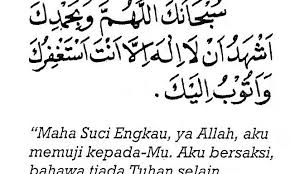 سُبْحَانَكَ اللّٰهُمَّ وَبِحَمْدِكَ
اَشْهَدُ اَنْ لَا اِلٰهَ اِلَّا اَنْتَ اَسْتَغْفِرُكَ
وَاَتُوْبُ اِلَيْكَ .
“Maha Suci Engkau, ya Allah, aku
memuji kepada-Mu. Aku bersaksi,
bahawa tiada Tuhan selain